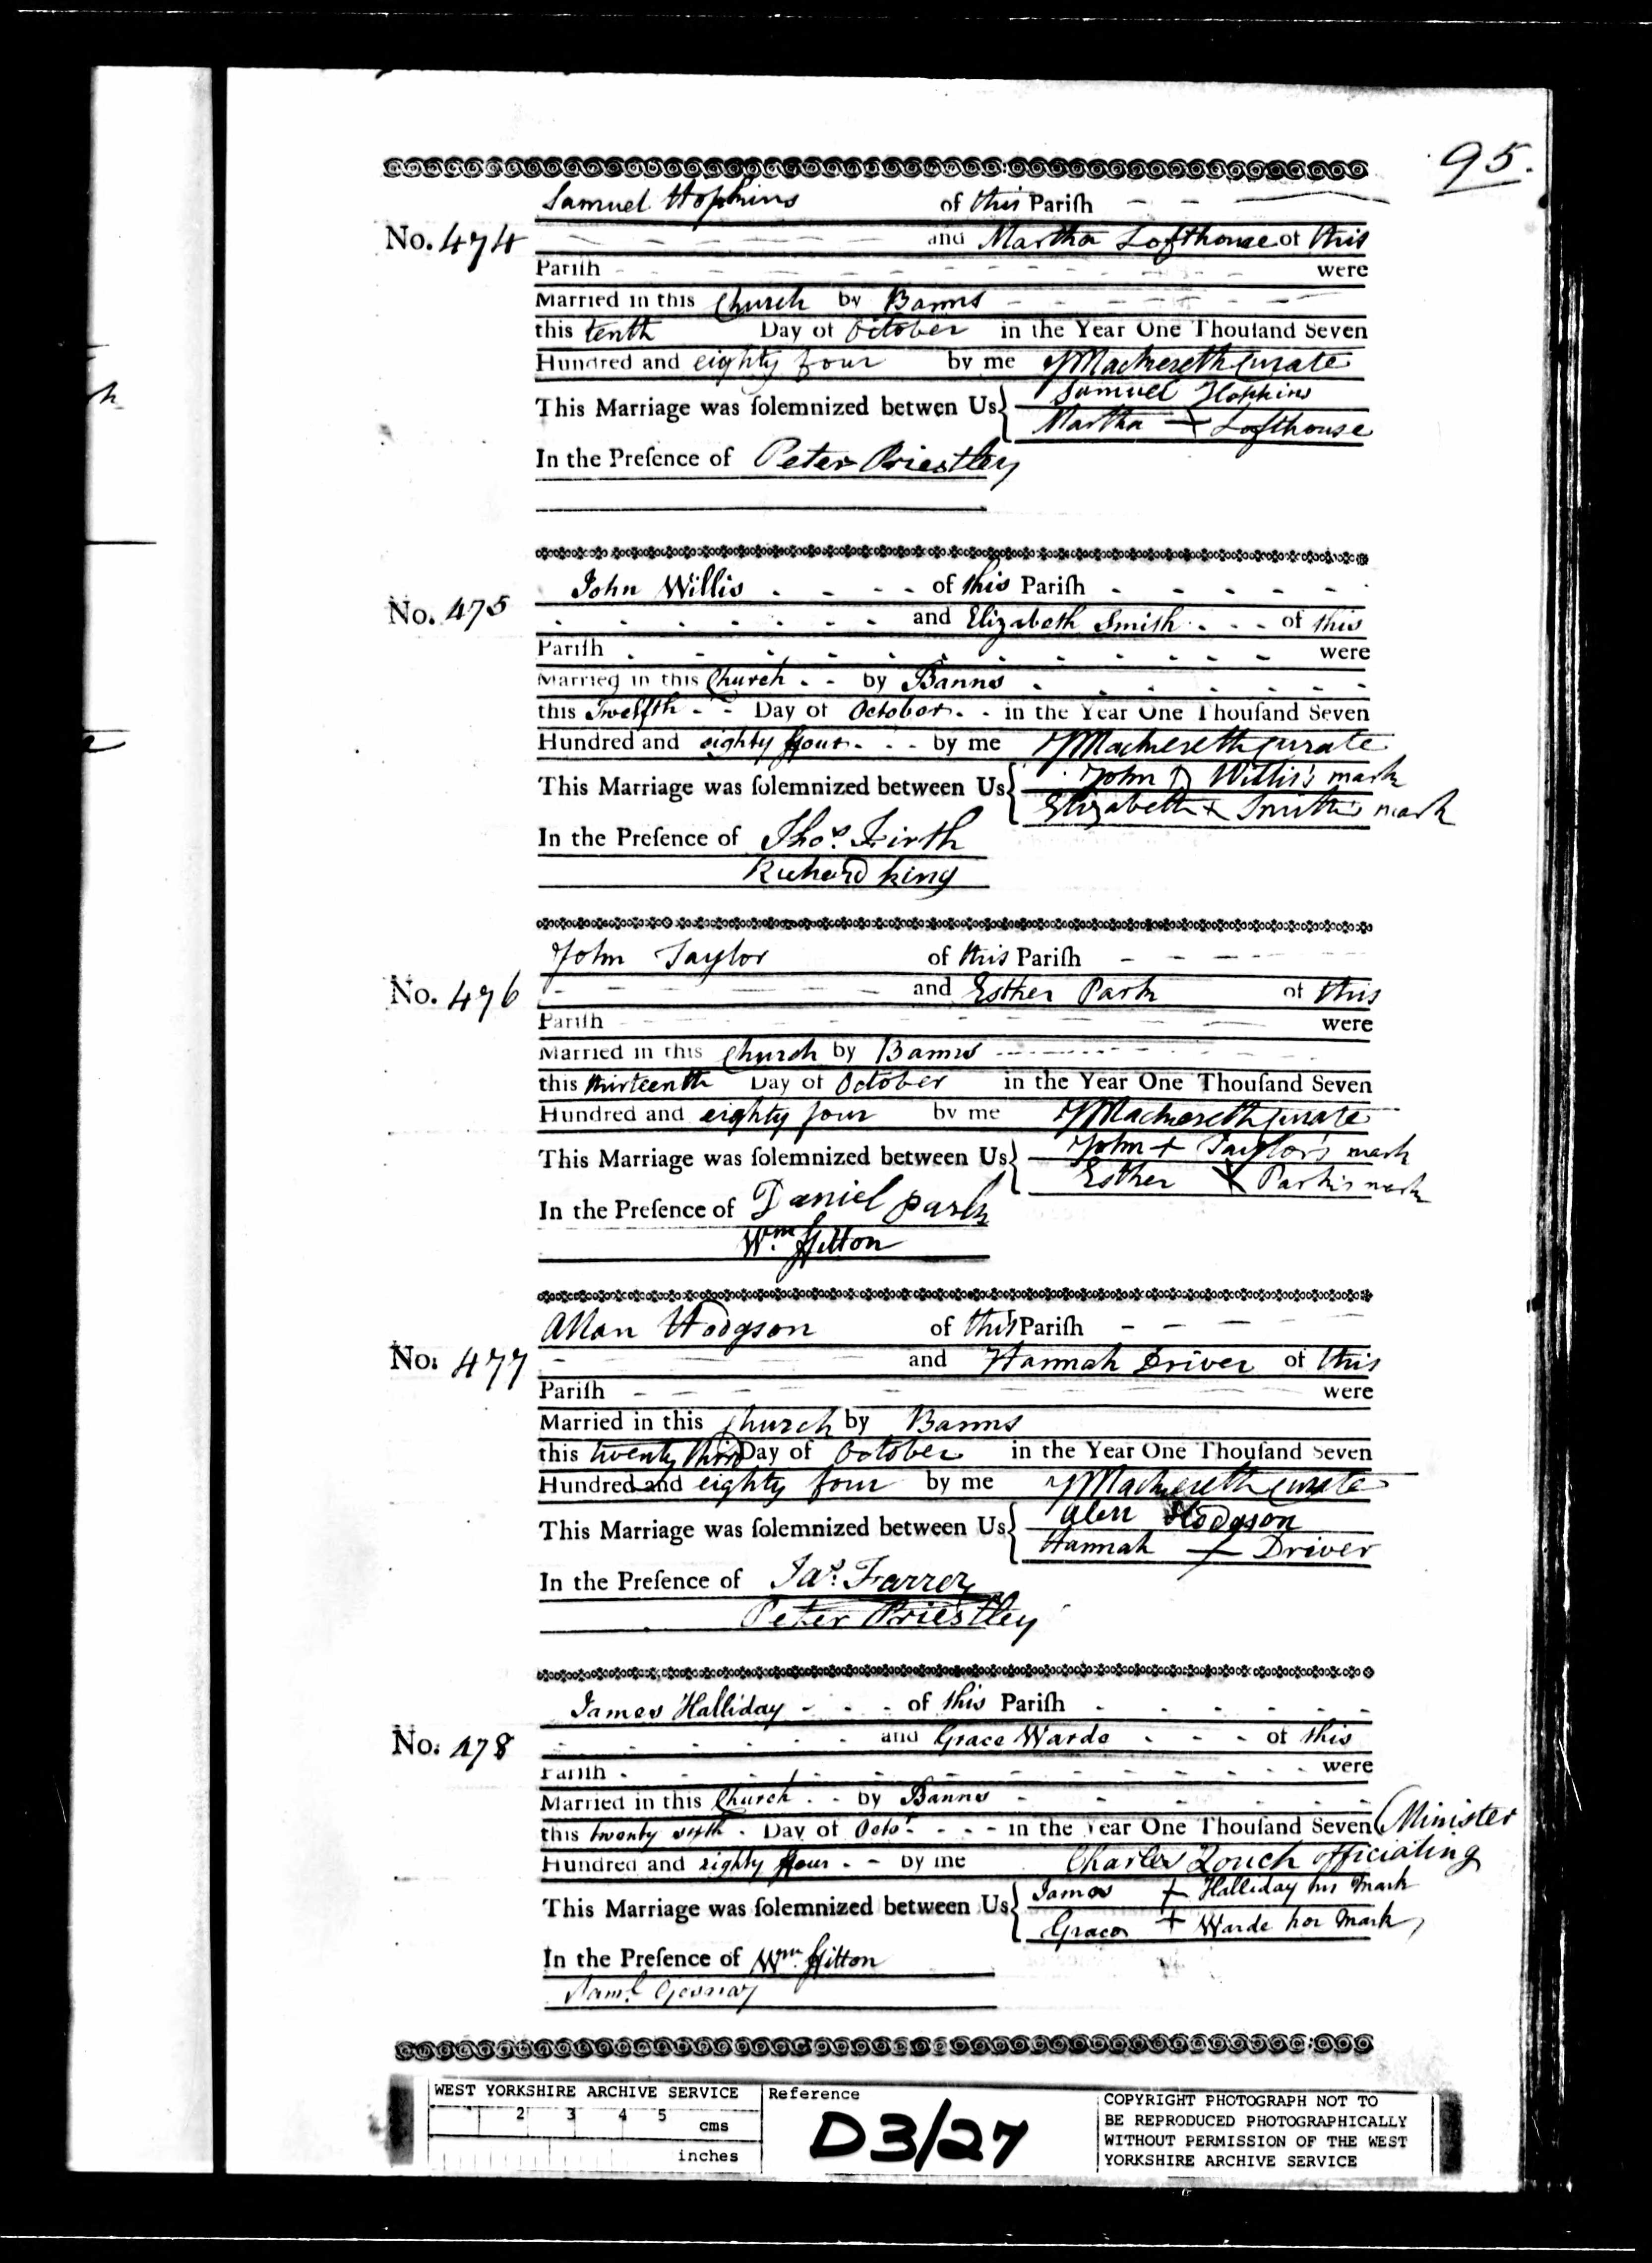 95.
Samuel Hopkins of this Pariſh
No. 474 and Martha Lofthouse of this
Pariſh were
Married in this Church by Banns
this tenth Day of October in the Year One Thouſand Seven
Hundred and eighty four by me Curate
This Marriage was ſolemnized betwen Us Samuel Hopkins
Martha + Lofthouse
In the Preſence of Peter Priestley
John Willis of this Pariſh
No. 475 and Elizabeth Smith of this
Pariſh were
Married in this Church by Banns
this Twelfth Day of October in the Year One Thouſand Seven
Hundred and eighty four by me Curate
This Marriage was ſolemnized between Us John Willis's mark
Elizabeth + Smith's mark
In the Preſence of Thos. Firth
Richard King
John Taylor of this Pariſh
No. 476 and Esther Park of this
Pariſh were
Married in this Church by Banns
this thirteenth Day of October in the Year One Thouſand Seven
Hundred and eighty four by me Curate
This Marriage was ſolemnized between Us John + Taylor's mark
Esther X Park's mark
In the Preſence of Daniel Park
Wm. Hitton
Allan Hodgson of this Pariſh
No. 477 and Hannah Driver of this
Pariſh were
Married in this Church by Banns
this twenty third Day of October in the Year One Thouſand Seven
Hundred and eighty four by me Curate
This Marriage was ſolemnized between Us Hodgson
Hannah + Driver
In the Preſence of Jas. Farrer
Peter Priestley
James Halliday of this Pariſh
No. 478 and Grace Warde of this
Pariſh were
Married in this Church by Banns
this twenty sixth Day of Octor. in the Year One Thouſand Seven (Minister
Hundred and eighty four by me Charles Zouch officiating
This Marriage was ſolemnized between Us James + Halliday his Mark
Grace + Warde her Mark
In the Preſence of Wm. Hitton
Saml.
WEST YORKSHIRE ARCHIVE SERVICE
2 3 4 5 cms
inches
Reference
D3/27
COPYRIGHT PHOTOGRAPH NOT TO
BE REPRODUCED PHOTOGRAPHICALLY
WITHOUT PERMISSION OF THE WEST
YORKSHIRE ARCHIVE SERVICE